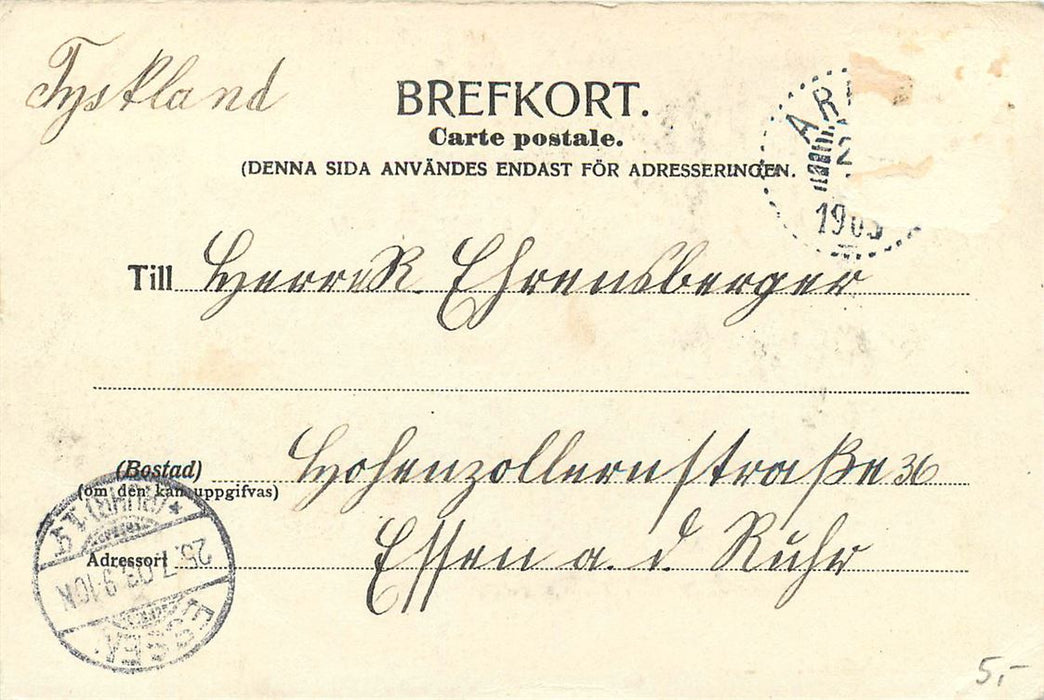 Tyskland
BREFKORT.
Carte postale.
(DENNA SIDA ANVÄNDES ENDAST FÖR ADRESSERINGEN.
Till Herrn R. Ehrensberger
(Bostad) Hohenzollernstraße 36
(om den kan uppgifvas)
Adressort Essen a. d. Ruhr
ESSEN
(RUHR) 1
25.7.03. 9-10N
5,-